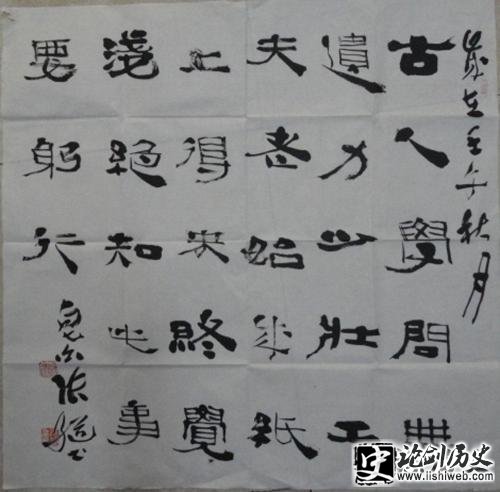 歲在壬午秋月
古人學問無
遺力少壯工
夫老始成紙
上得来終覺
淺絕知此事
要躬行
史
论剑历史
www.lishiweb.com